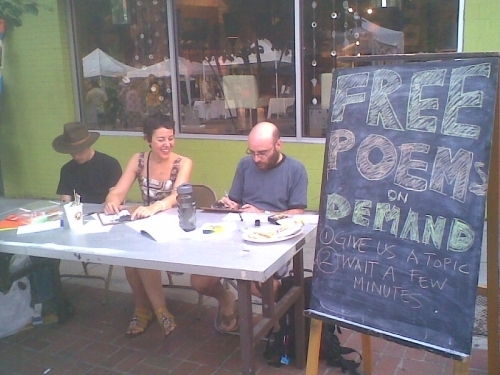 FREE
POEMS
ON
DEMAND
① GIVE US A TOPIC
② WAIT A FEW
MINUTES